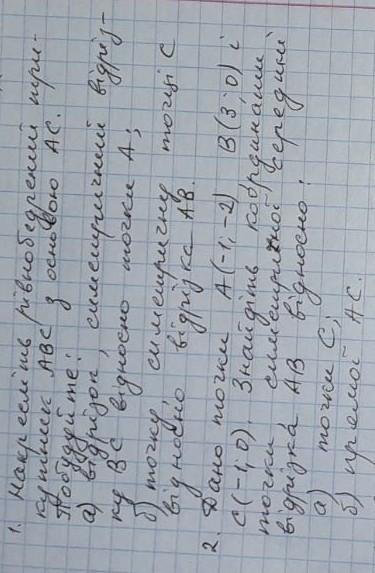 1. Накресліть рівнобедрений три-
кутник ABC з основою AC.
Побудуйте:
а) відрізок, симетричний відріз-
ку BC відносно точки A;
б) точку, симетричну точці C
відносно відрізка AB.
2. Дано точки A(-1; -2) B(3; 0) і
C(-1; 0) Знайдіть координати
точки симетричної середині
відрізка AB відносно:
а) точки C;
б) прямої AC.